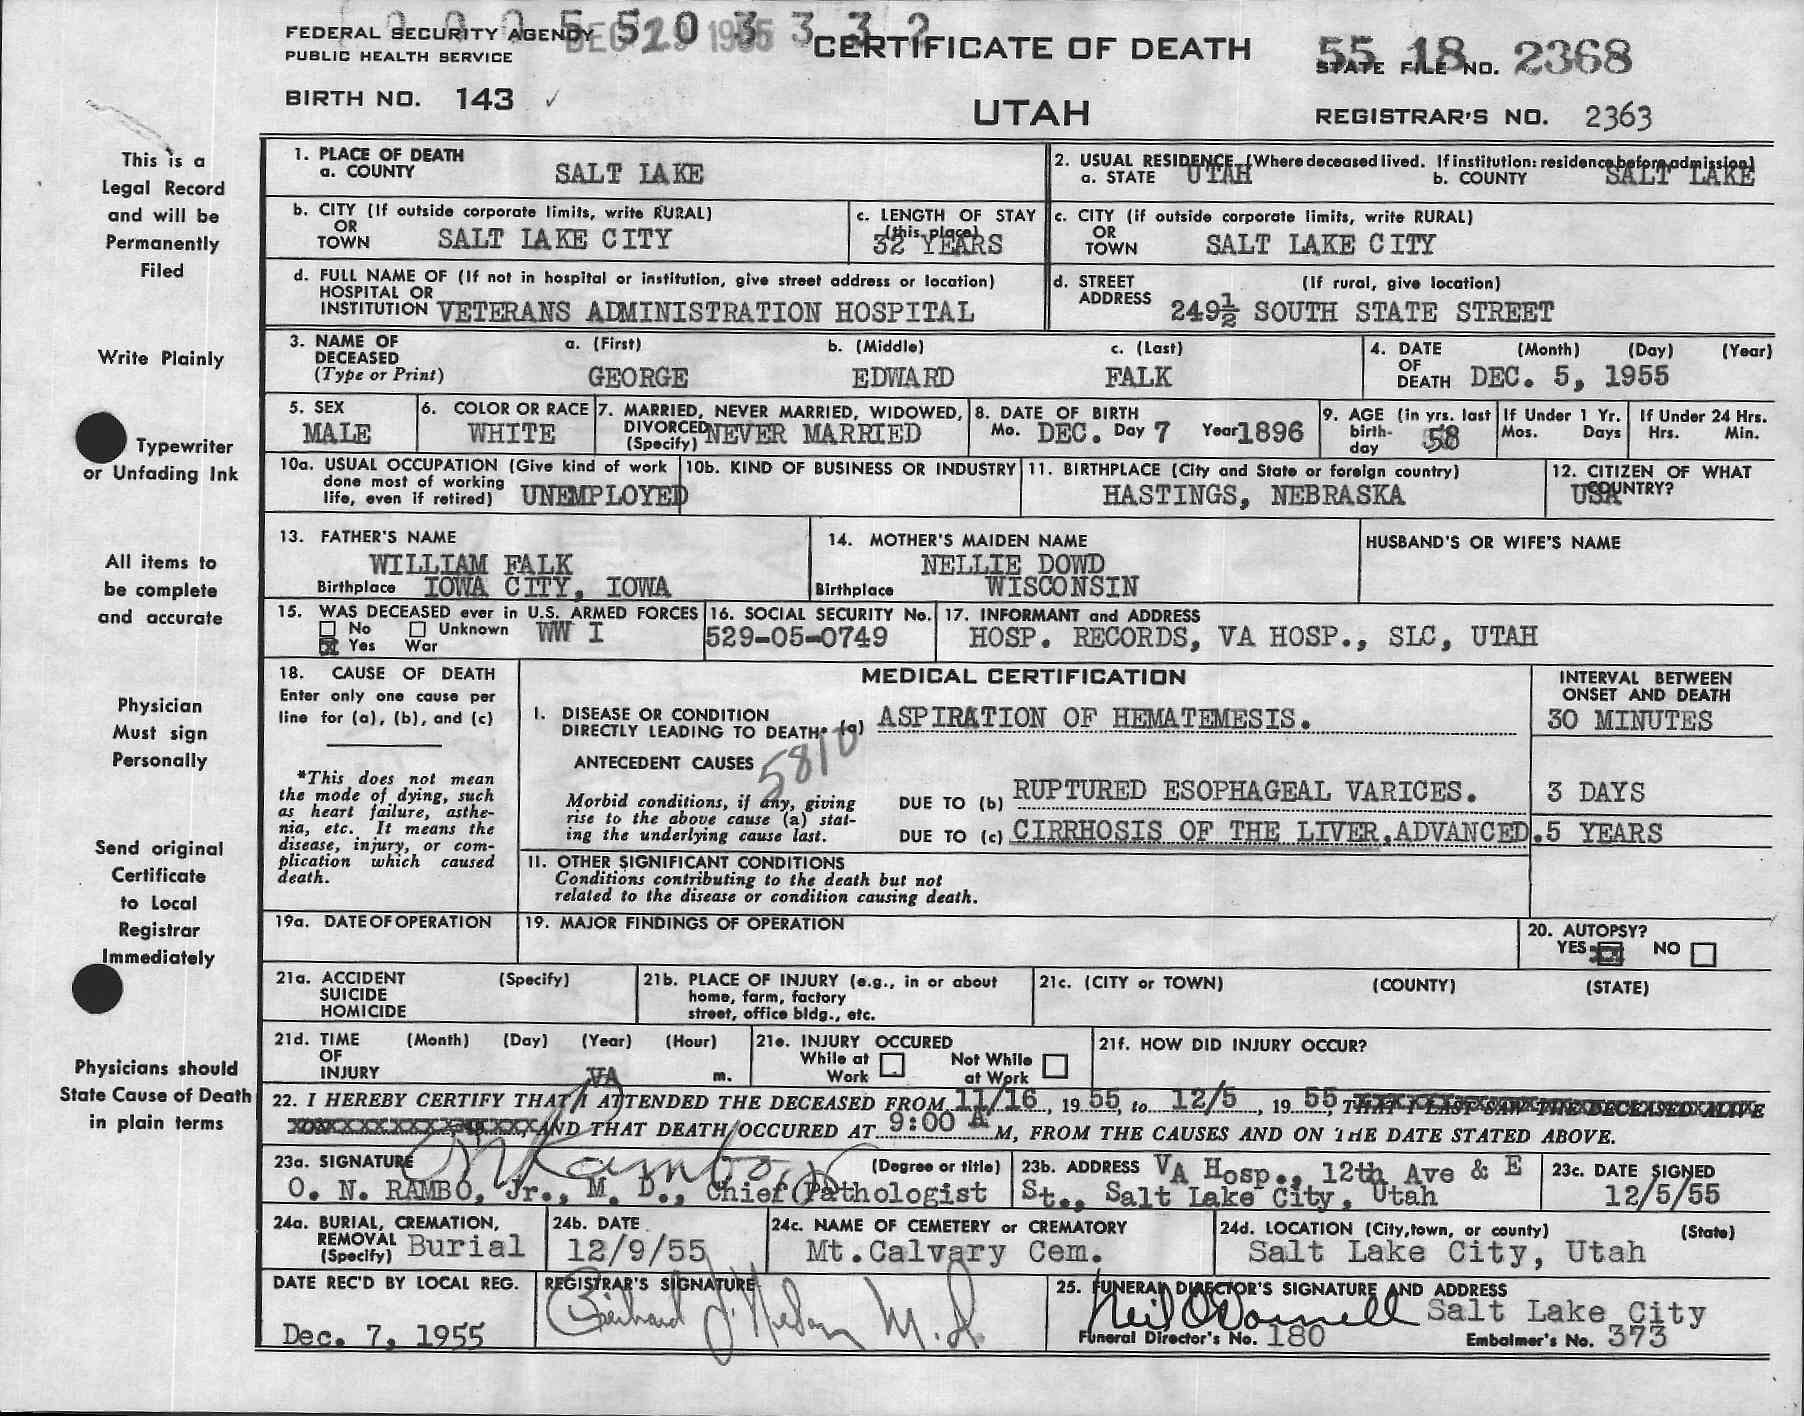 FEDERAL SECURITY AGENCY
PUBLIC HEALTH SERVICE
BIRTH NO. 143 ✓
0005503332
DEC 29 1955
CERTIFICATE OF DEATH
UTAH
55 18 2368
STATE FILE NO.
REGISTRAR'S NO. 2363
This is a
Legal Record
and will be
Permanently
Filed
Write Plainly
Typewriter
or Unfading Ink
All items to
be complete
and accurate
Physician
Must sign
Personally
Send original
Certificate
to Local
Registrar
Immediately
Physicians should
State Cause of Death
in plain terms
1. PLACE OF DEATH
a. COUNTY SALT LAKE
2. USUAL RESIDENCE (Where deceased lived. If institution: residence before admission)
a. STATE UTAH b. COUNTY SALT LAKE
b. CITY (If outside corporate limits, write RURAL)
OR
TOWN SALT LAKE CITY
c. LENGTH OF STAY
(this place)
32 YEARS
c. CITY (if outside corporate limits, write RURAL)
OR
TOWN SALT LAKE CITY
d. FULL NAME OF (If not in hospital or institution, give street address or location)
HOSPITAL OR
INSTITUTION VETERANS ADMINISTRATION HOSPITAL
d. STREET (If rural, give location)
ADDRESS 249½ SOUTH STATE STREET
3. NAME OF
DECEASED
(Type or Print)
a. (First) b. (Middle) c. (Last)
GEORGE EDWARD FALK
4. DATE (Month) (Day) (Year)
OF
DEATH DEC. 5, 1955
5. SEX
MALE
6. COLOR OR RACE
WHITE
7. MARRIED, NEVER MARRIED, WIDOWED,
DIVORCED
(Specify) NEVER MARRIED
8. DATE OF BIRTH
Mo. DEC. Day 7 Year 1896
9. AGE (in yrs. last
birth-
day 58
If Under 1 Yr.
Mos. Days
If Under 24 Hrs.
Hrs. Min.
10a. USUAL OCCUPATION (Give kind of work
done most of working
life, even if retired) UNEMPLOYED
10b. KIND OF BUSINESS OR INDUSTRY
11. BIRTHPLACE (City and State or foreign country)
HASTINGS, NEBRASKA
12. CITIZEN OF WHAT
COUNTRY?
USA
13. FATHER'S NAME
WILLIAM FALK
Birthplace IOWA CITY, IOWA
14. MOTHER'S MAIDEN NAME
NELLIE DOWD
Birthplace WISCONSIN
HUSBAND'S OR WIFE'S NAME
15. WAS DECEASED ever in U.S. ARMED FORCES
No Unknown WW I
Yes War
16. SOCIAL SECURITY No.
529-05-0749
17. INFORMANT and ADDRESS
HOSP. RECORDS, VA HOSP., SLC, UTAH
18. CAUSE OF DEATH
Enter only one cause per
line for (a), (b), and (c)
*This does not mean
the mode of dying, such
as heart failure, asthe-
nia, etc. It means the
disease, injury, or com-
plication which caused
death.
MEDICAL CERTIFICATION
INTERVAL BETWEEN
ONSET AND DEATH
I. DISEASE OR CONDITION
DIRECTLY LEADING TO DEATH* (a) ASPIRATION OF HEMATEMESIS. 30 MINUTES
5810
ANTECEDENT CAUSES
Morbid conditions, if any, giving
rise to the above cause (a) stat-
ing the underlying cause last.
DUE TO (b) RUPTURED ESOPHAGEAL VARICES. 3 DAYS
DUE TO (c) CIRRHOSIS OF THE LIVER, ADVANCED. 5 YEARS
II. OTHER SIGNIFICANT CONDITIONS
Conditions contributing to the death but not
related to the disease or condition causing death.
19a. DATE OF OPERATION
19. MAJOR FINDINGS OF OPERATION
20. AUTOPSY?
YES NO
21a. ACCIDENT (Specify)
SUICIDE
HOMICIDE
21b. PLACE OF INJURY (e.g., in or about
home, farm, factory
street, office bldg., etc.
21c. (CITY or TOWN) (COUNTY) (STATE)
21d. TIME (Month) (Day) (Year) (Hour)
OF
INJURY m.
21e. INJURY OCCURED
While at Not While
Work at Work
21f. HOW DID INJURY OCCUR?
VA
22. I HEREBY CERTIFY THAT I ATTENDED THE DECEASED FROM 11/16, 1955, to 12/5, 1955, THAT I LAST SAW THE DECEASED ALIVE
AND THAT DEATH OCCURED AT 9:00 A M, FROM THE CAUSES AND ON THE DATE STATED ABOVE.
23a. SIGNATURE (Degree or title)
O. N. RAMBO, Jr., M. D., Chief Pathologist
23b. ADDRESS VA Hosp., 12th Ave & E
St., Salt Lake City, Utah
23c. DATE SIGNED
12/5/55
24a. BURIAL, CREMATION,
REMOVAL
(Specify) Burial
24b. DATE
12/9/55
24c. NAME OF CEMETERY or CREMATORY
Mt. Calvary Cem.
24d. LOCATION (City, town, or county) (State)
Salt Lake City, Utah
DATE REC'D BY LOCAL REG.
Dec. 7, 1955
REGISTRAR'S SIGNATURE
M.D.
25. FUNERAL DIRECTOR'S SIGNATURE AND ADDRESS
Neil O'Donnell Salt Lake City
Funeral Director's No. 180 Embalmer's No. 373